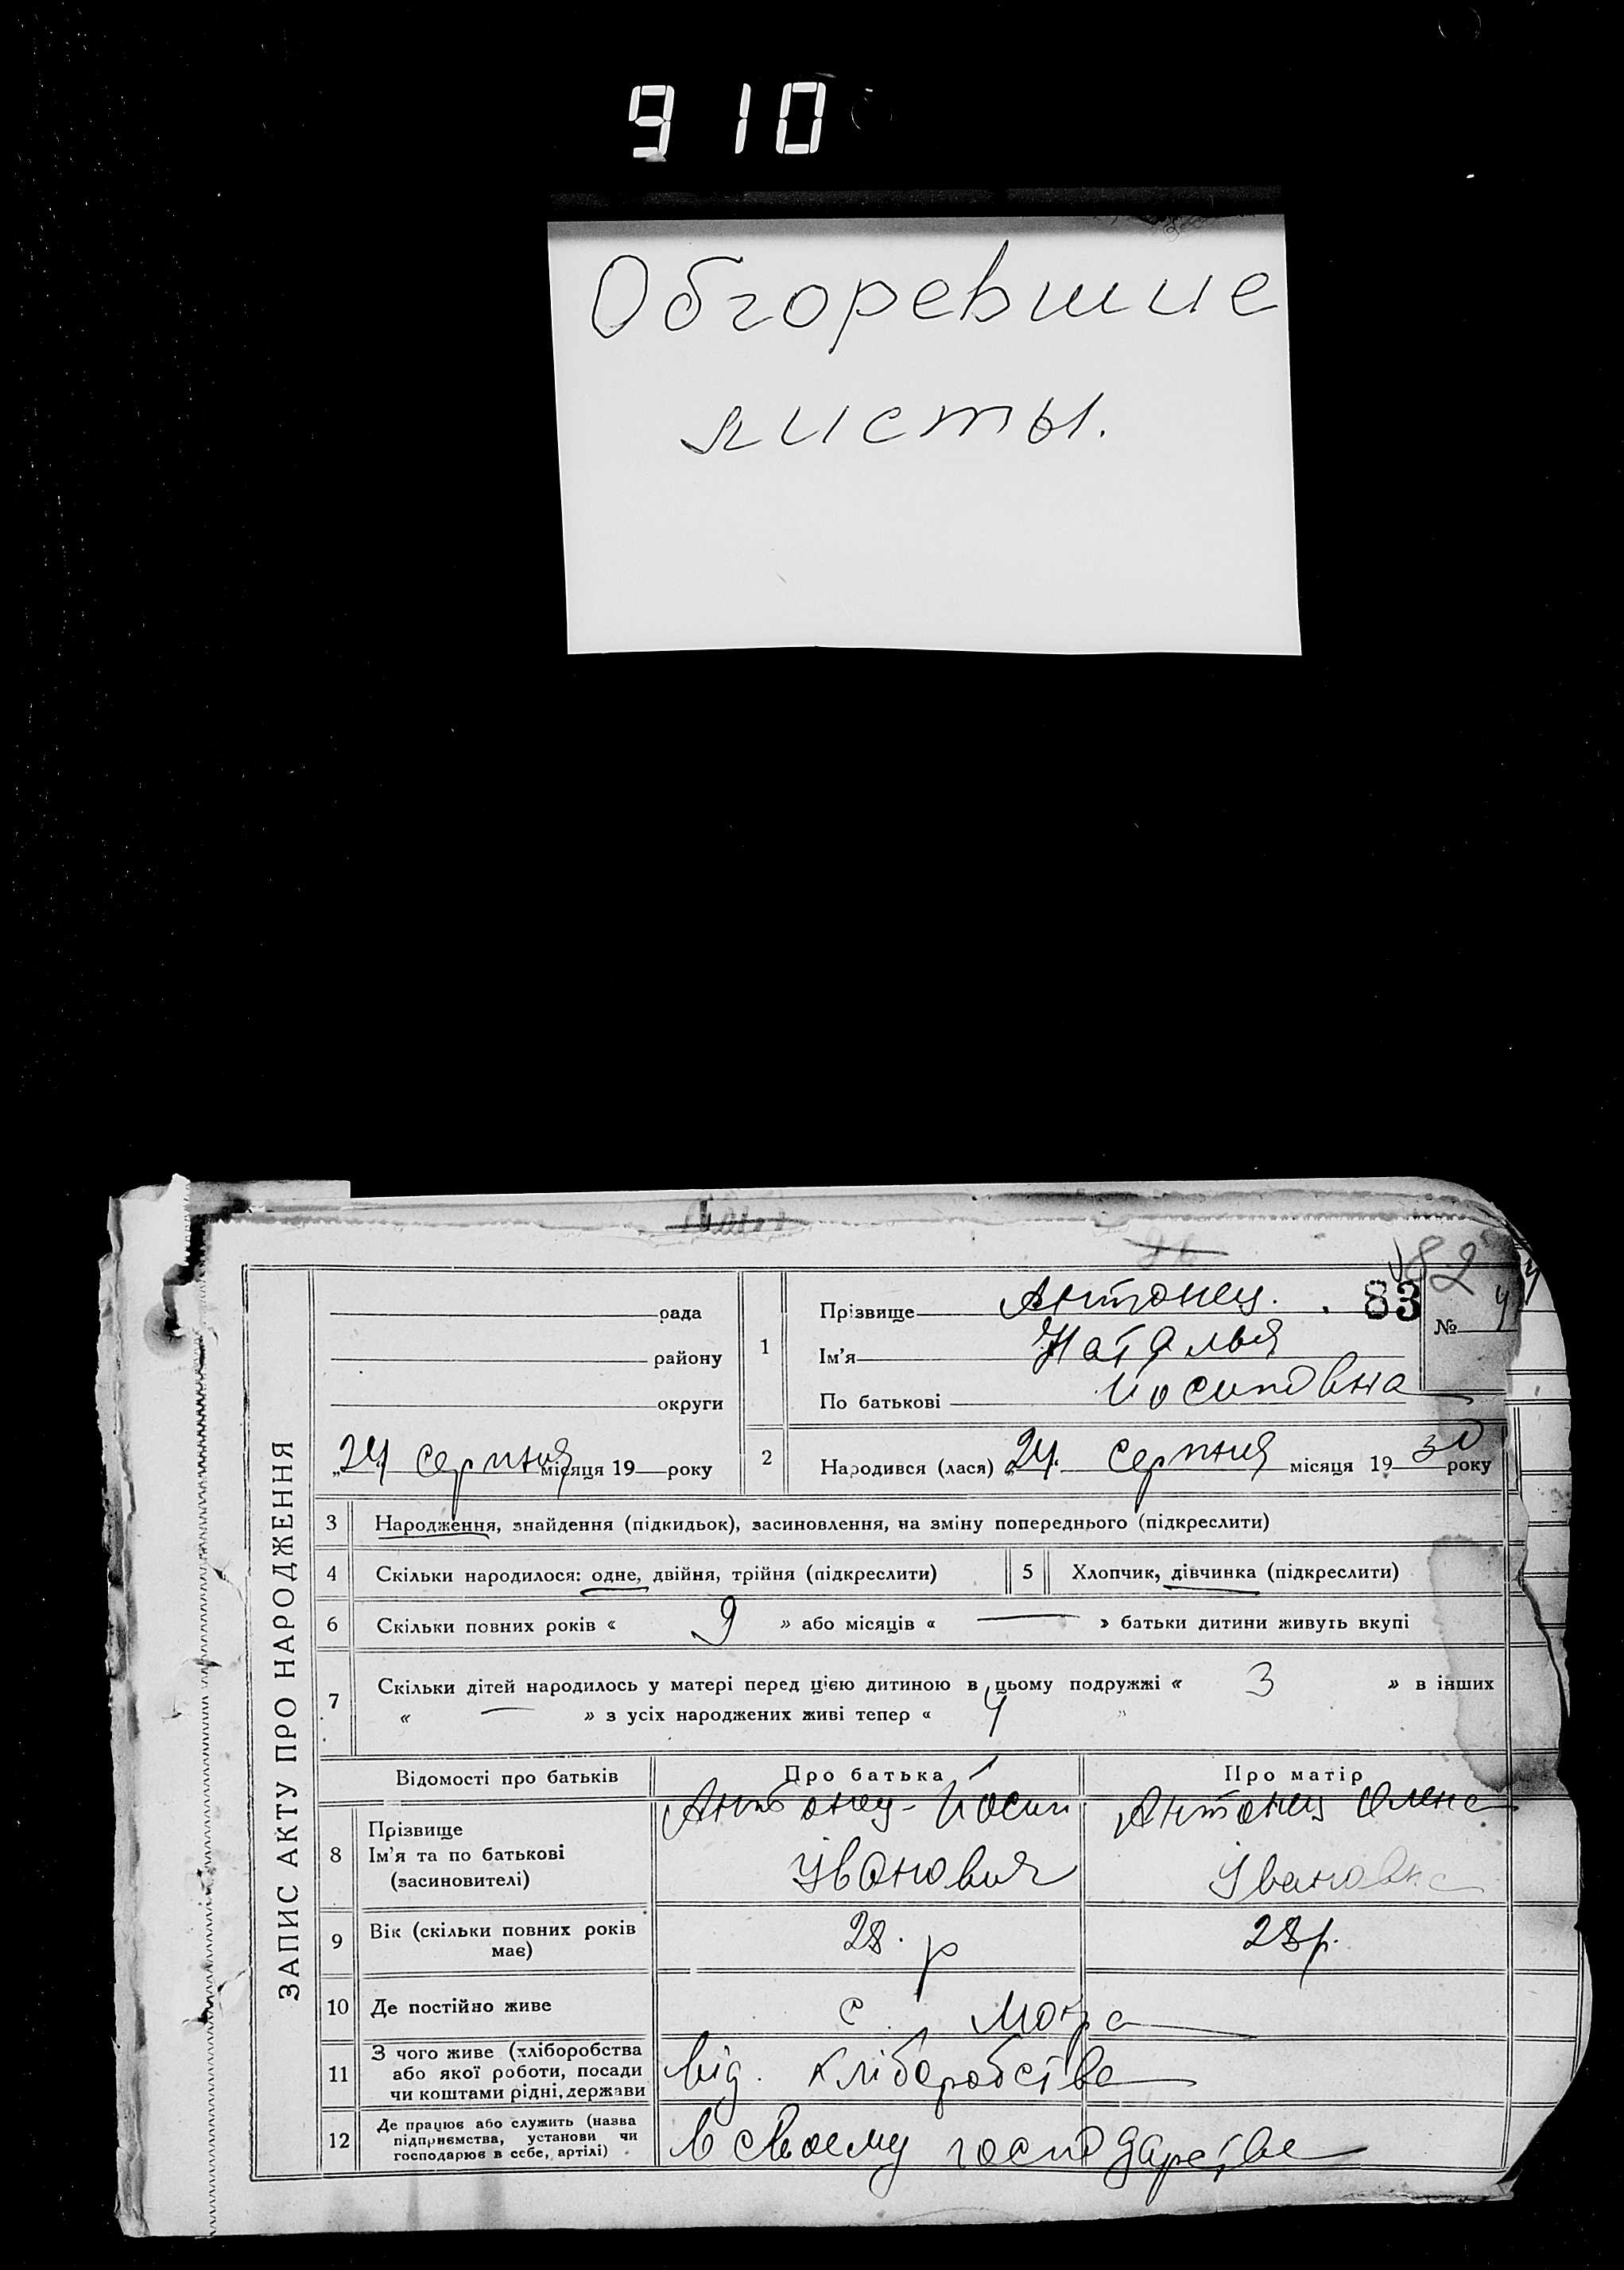 910
Обгоревшие
листы.
82
83
№ 4
ЗАПИС АКТУ ПРО НАРОДЖЕННЯ
рада
району
округи
„24 серпня місяця 19 року
1
Прізвище Антонец.
Ім'я Наталья
По батькові Иосиповна
2
Народився (лася) „24. серпня місяця 1930 року
3 Народження, знайдення (підкидьок), засиновлення, на зміну попереднього (підкреслити)
4 Скільки народилося: одне, двійня, трійня (підкреслити)
5 Хлопчик, дівчинка (підкреслити)
6 Скільки повних років « 9 » або місяців « — » батьки дитини живуть вкупі
7 Скільки дітей народилось у матері перед цією дитиною в цьому подружжі « 3 » в інших
« — » з усіх народжених живі тепер « 4 "
Відомості про батьків
Про батька
Про матір
8
Прізвище
Ім'я та по батькові
(засиновителі)
Антонец- Йосип
Іванович
Антонец Олена
Івановна
9
Вік (скільки повних років
має)
28. р
28р.
10 Де постійно живе
с. Мокра
11
З чого живе (хліборобства
або якої роботи, посади
чи коштами рідні, держави
від. хліборобства
12
Де працює або служить (назва
підприємства, установи чи
господарює в себе, артілі)
в своему господарстве